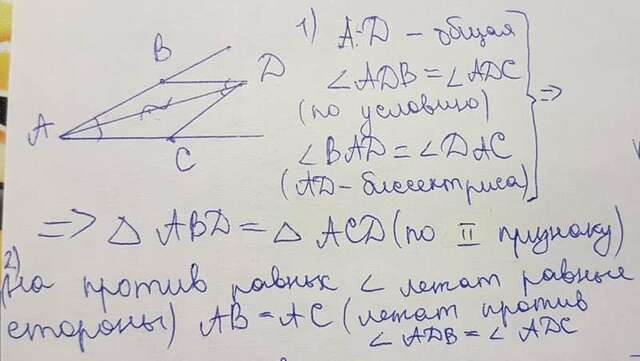 B
D
A
C
1) AD – общая
∠ADB = ∠ADC
(по условию)
∠BAD = ∠DAC
(AD – биссектриса)
=>
=> △ ABD = △ ACD (по II признаку)
2)
(На против равных ∠ лежат равные
стороны) AB = AC (лежат против
∠ ADB = ∠ ADC